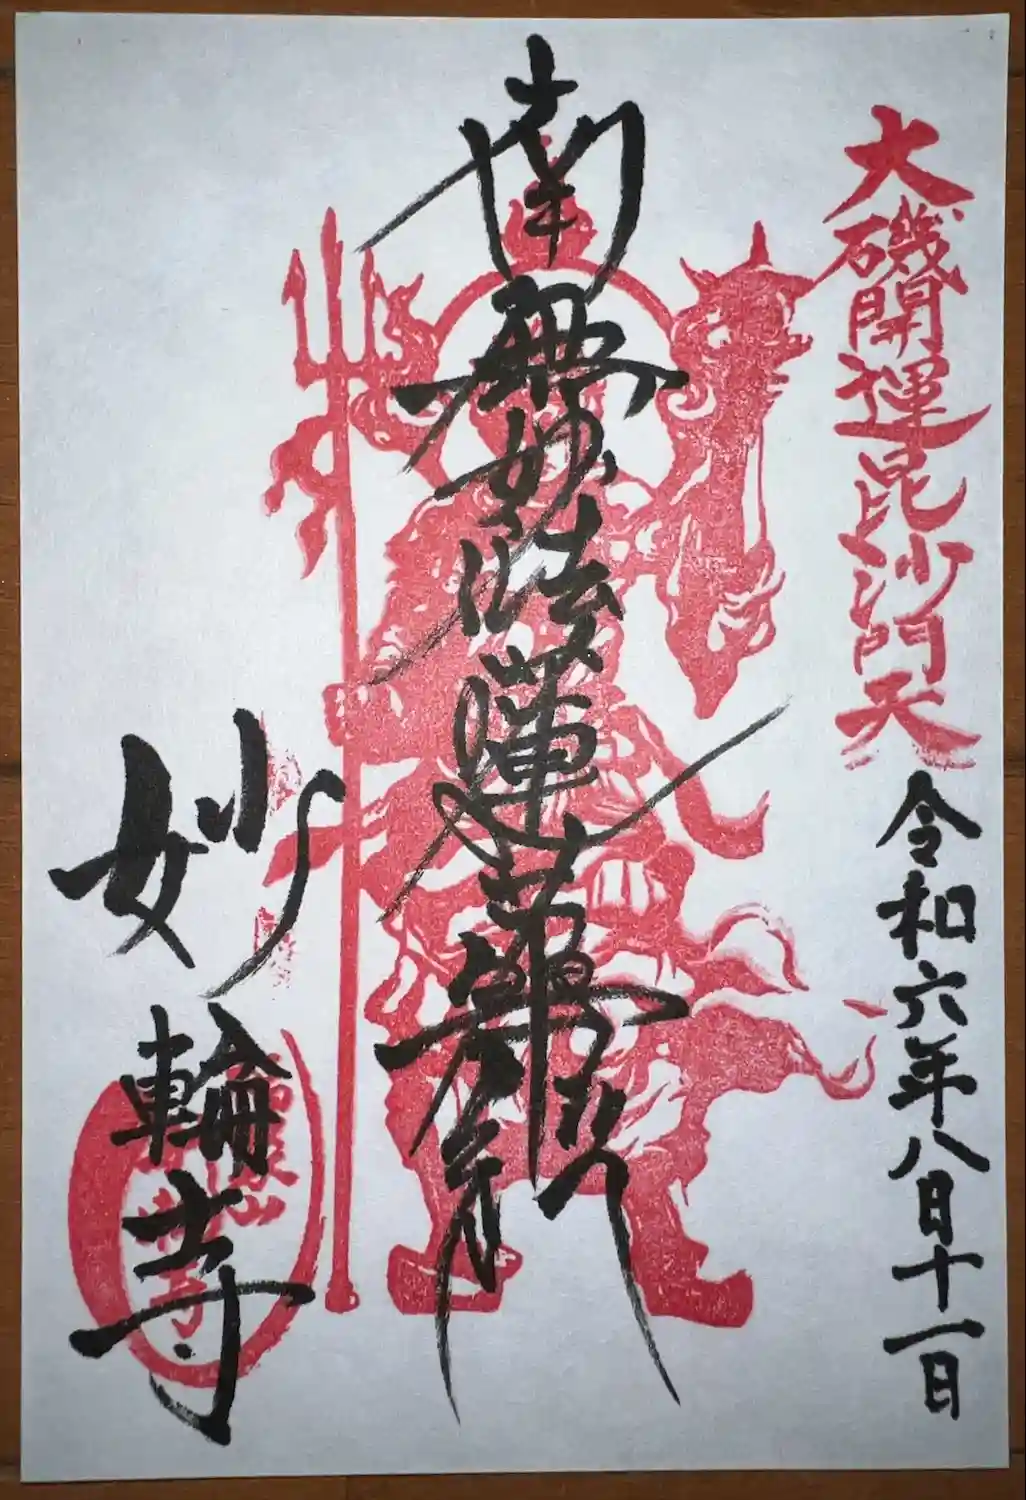 大磯開運毘沙門天
令和六年八日十一日
南無妙法蓮華経
妙輪寺